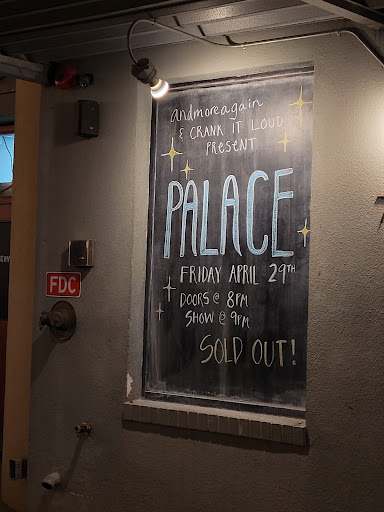 andmoreagain
& CRANK IT LOUD
PRESENT
PALACE
FRIDAY APRIL 29TH
DOORS @ 8PM
SHOW @ 9PM
SOLD OUT!
FDC